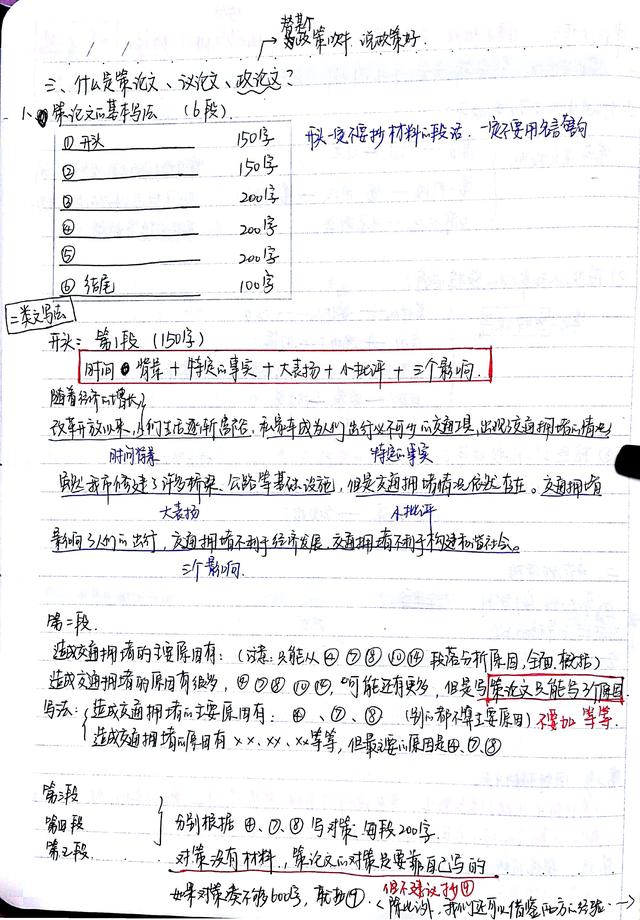 替某个
→ 政策吹牛 说政策好.
三、什么是策论文、议论文、政论文？
1、策论文的基本写法 （6段）.
① 开头 150字
② 150字
③ 200字
④ 200字
⑤ 200字
⑥ 结尾 100字
开头一定不要抄材料的段话. 一定不要用名言警句
二类文写法
开头： 第1段 （150字）
时间背景 + 特定的事实 + 大表扬 + 小批评 + 三个影响.
随着经济的增长,
改革开放以来, 人们生活逐渐富裕, 私家车成为人们出行必不可少的交通工具, 出现了交通拥堵的情况,
时间背景 特定的事实
虽然我市修建了许多桥梁、公路等基础设施, 但是交通拥堵情况依然存在。交通拥堵
大表扬 小批评
影响了人们的出行, 交通拥堵不利于经济发展, 交通拥堵不利于构建和谐社会。
三个影响.
第二段.
造成交通拥堵的主要原因有：（注意：只能从 ④ ⑦ ⑧ ⑩ ⑭ 段落分析原因, 全面. 概括）
造成交通拥堵的原因有很多, ④ ⑦ ⑧ ⑩ ⑭, 可能还有更多, 但是写策论文只能写3个原因
写法：造成交通拥堵的主要原因有： ④、⑦、⑧ （别的都不算主要原因）不要加 等等.
造成交通拥堵的原因有 ××、××、××等等, 但最主要的原因是④、⑦、⑧
第三段
第四段
第五段
分别根据 ④、⑦、⑧ 写对策. 每段200字.
对策没有材料, 策论文的对策是要靠自己写的
但不建议抄
如果对策凑不够600字, 就抄
（除此以外, 我们还可以借鉴西方的经验. →）